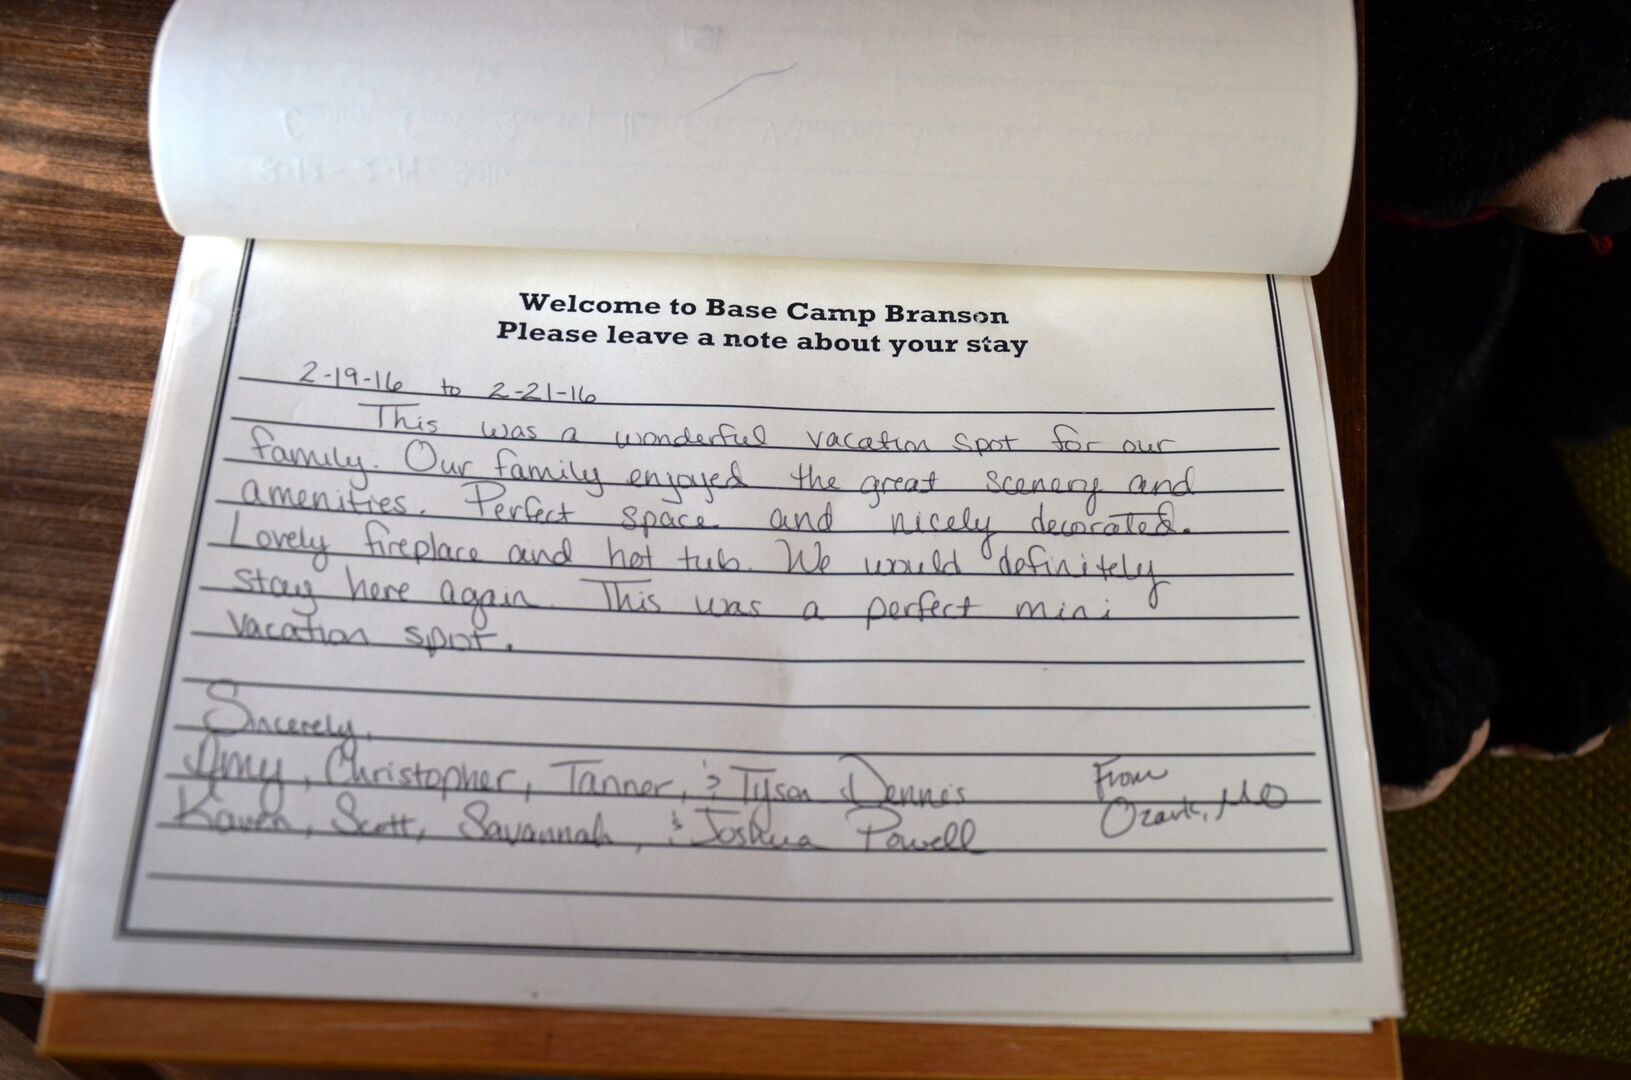 Welcome to Base Camp Branson
Please leave a note about your stay
2-19-16 to 2-21-16
This was a wonderful vacation spot for our
family. Our family enjoyed the great scenery and
amenities. Perfect space and nicely decorated.
Lovely fireplace and hot tub. We would definitely
stay here again. This was a perfect mini
vacation spot.
Sincerely,
Amy, Christopher, Tanner, & Tyson Dennis
From
Karen, Scott, Savannah, & Joshua Powell
Ozark, MO